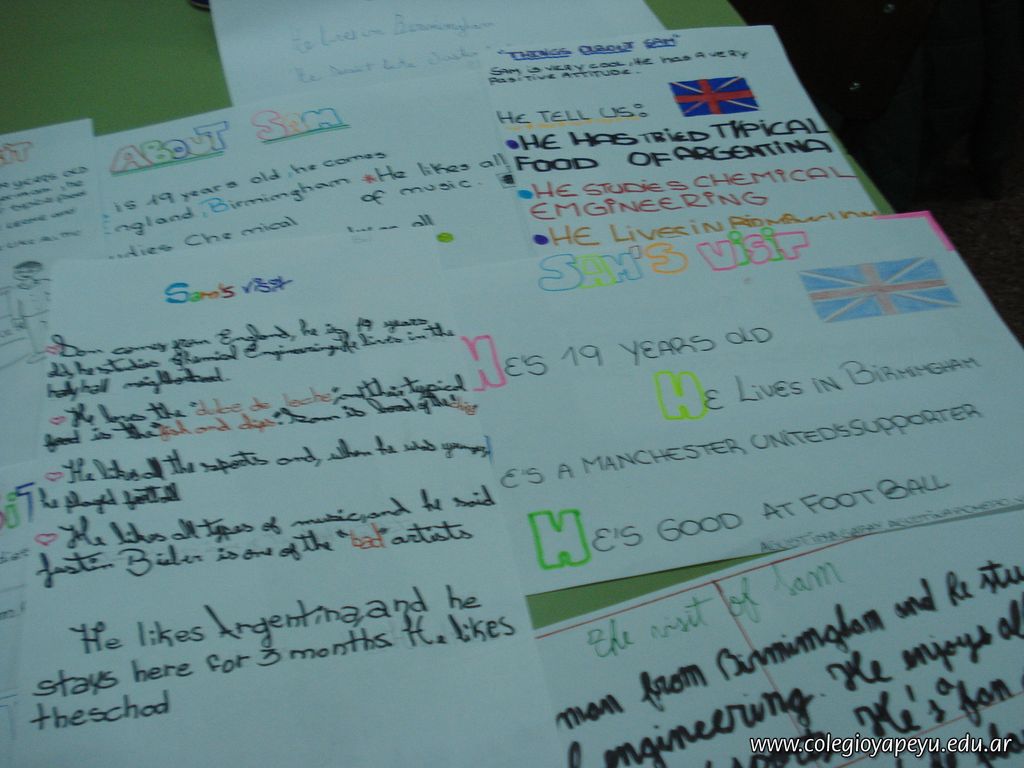 He lives in Birmingham
ABOUT SAM
is 19 years old, he comes
ngland, Birmingham
udies Chemical
*He likes all
of music.
all
"THINGS ABOUT SAM"
SAM IS VERY COOL, HE HAS A VERY
POSITIVE ATTITUDE.
HE TELL US:
•HE HAS TRIED TYPICAL
FOOD OF ARGENTINA
•HE STUDIES CHEMICAL
EMGINEERING
•HE LIVES IN
Sam's visit
Sam comes from England, he is 19 years
old, he studies Chemical Engineering. He lives in the
neighborhood.
He loves the "dulce de leche" and their typical
food is the "fish and chips".
He likes all the sports and, when he was young,
he played football
He likes all types of music, and he said
Justin Bieber is one of the "bad" artists
He likes Argentina, and he
stays here for 3 months He likes
theschool
SAM'S VISIT
HE'S 19 YEARS OLD
HE LIVES IN BIRMINGHAM
E'S A MANCHESTER UNITED'S SUPPORTER
HE'S GOOD AT FOOTBALL
The visit of Sam
man from Birmimgham and he stu
engineering. He enjoys al
He's a fan
www.colegioyapeyu.edu.ar